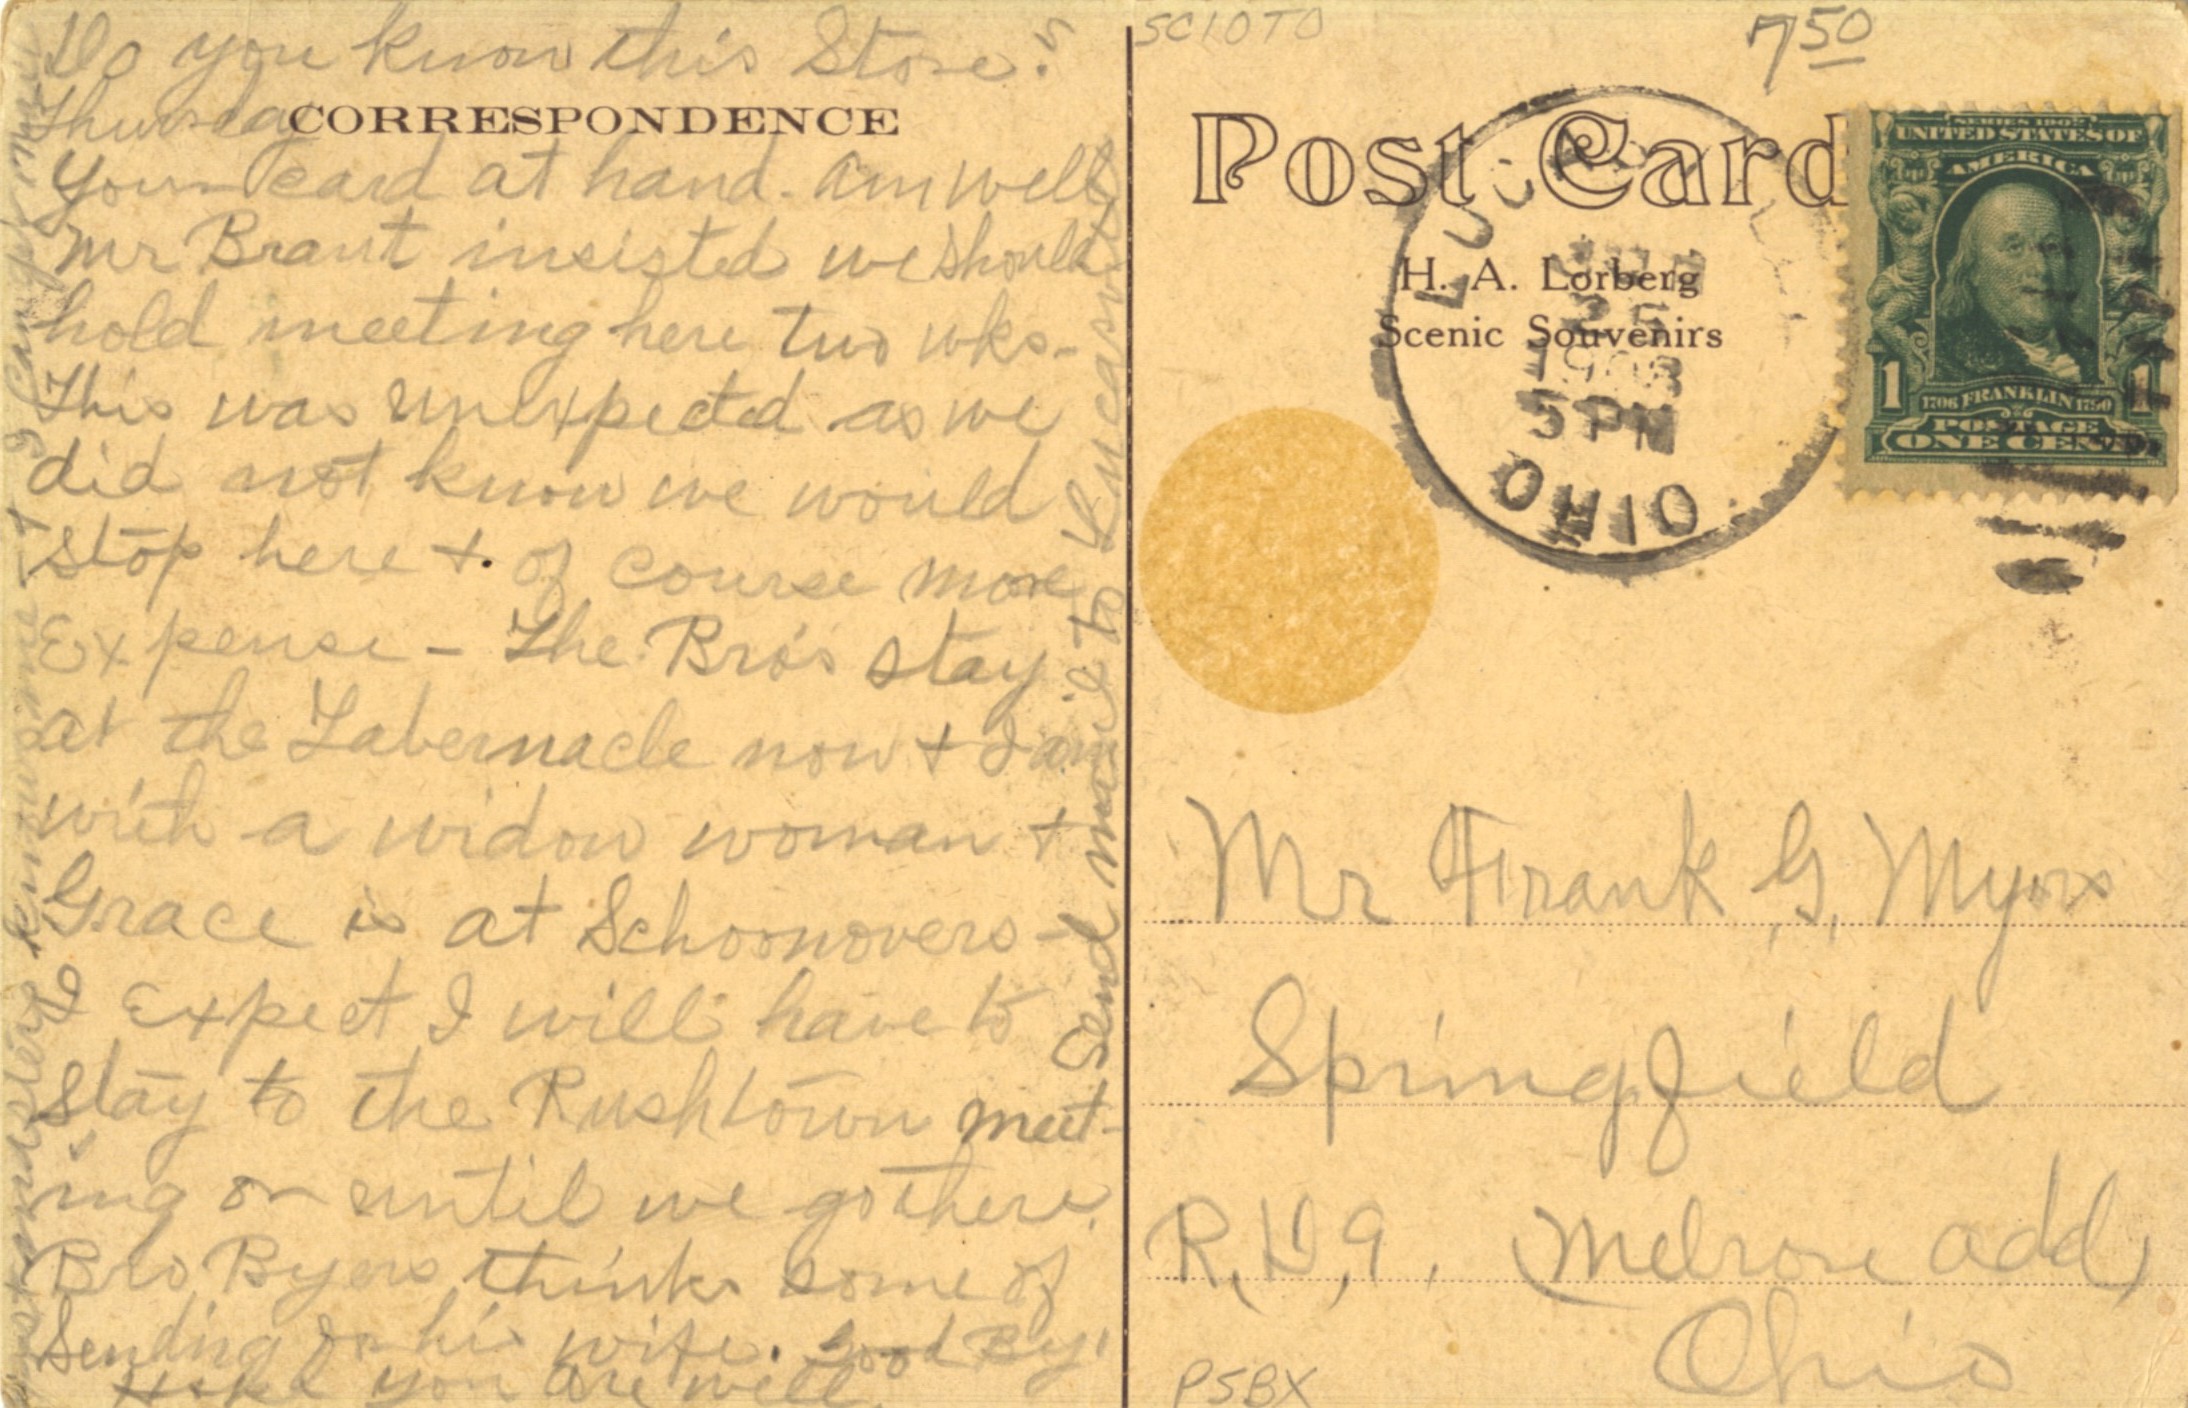 Do you know this Store?
CORRESPONDENCE
Thursday
Your card at hand. Am well
Mr Brant insisted we should
hold meeting here two wks.
This was unexpected as we
did not know we would
stop here +. of course more
Expense - The Bro's stay
at the Tabernacle now + I am
with a widow woman +
Grace is at Schoonovers -
I Expect I will have to
stay to the Rushtown meet-
ing or until we go there.
Bro Byers thinks some of
Sending for his wife. Good By!
Hope you are well
Send mail to Lucasville
SCIOTO
7 50
Post Card
H. A. Lorberg
Scenic Souvenirs
LUCASVILLE
25
1908
5 PM
OHIO
SERIES 1902
UNITED STATES OF
AMERICA
1 1706 FRANKLIN 1790 1
POSTAGE
ONE CENT
Mr Frank G. Myers
Springfield
R. D. 9. (Melrose add)
Ohio
PSBX